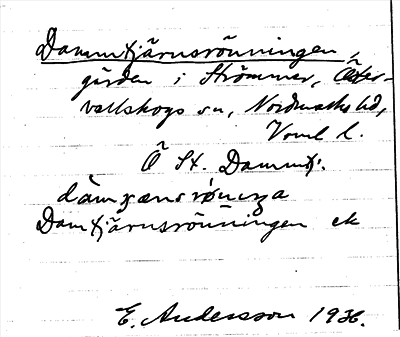 Dammtjärnsrönningen,
gården i Strömmer, Öster-
vallskogs sn, Nordmarks hd,
Vrml l.
Ö St. Dammtj.
Damtjärnsrönningen ek
E. Andersson 1936.